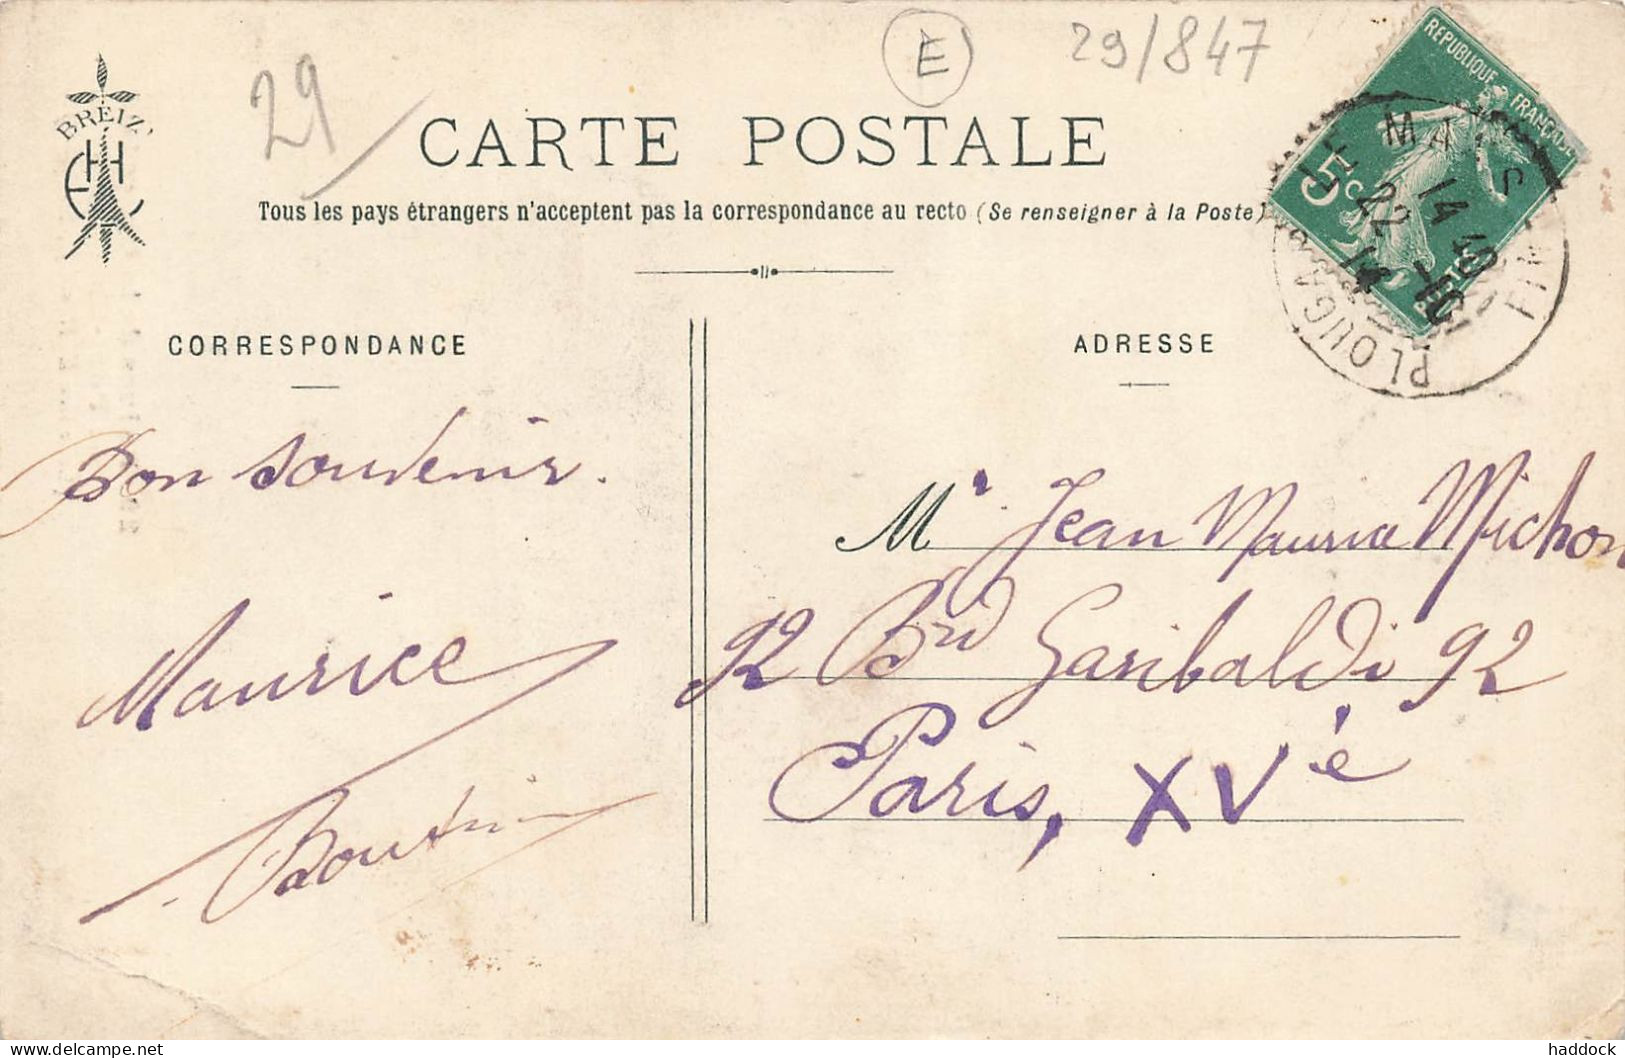 29
E
29/847
BREIZ'
EHC
CARTE POSTALE
Tous les pays étrangers n'acceptent pas la correspondance au recto (Se renseigner à la Poste)
RÉPUBLIQUE FRANÇAISE
5c
POSTES
PLOUGA
14 40
22 -10
14
FIN
CORRESPONDANCE
ADRESSE
Bon souvenir.
Maurice
Boutin
Mr. Jean Maurice Michon
92 Brd Garibaldi 92
Paris, XVè
haddock